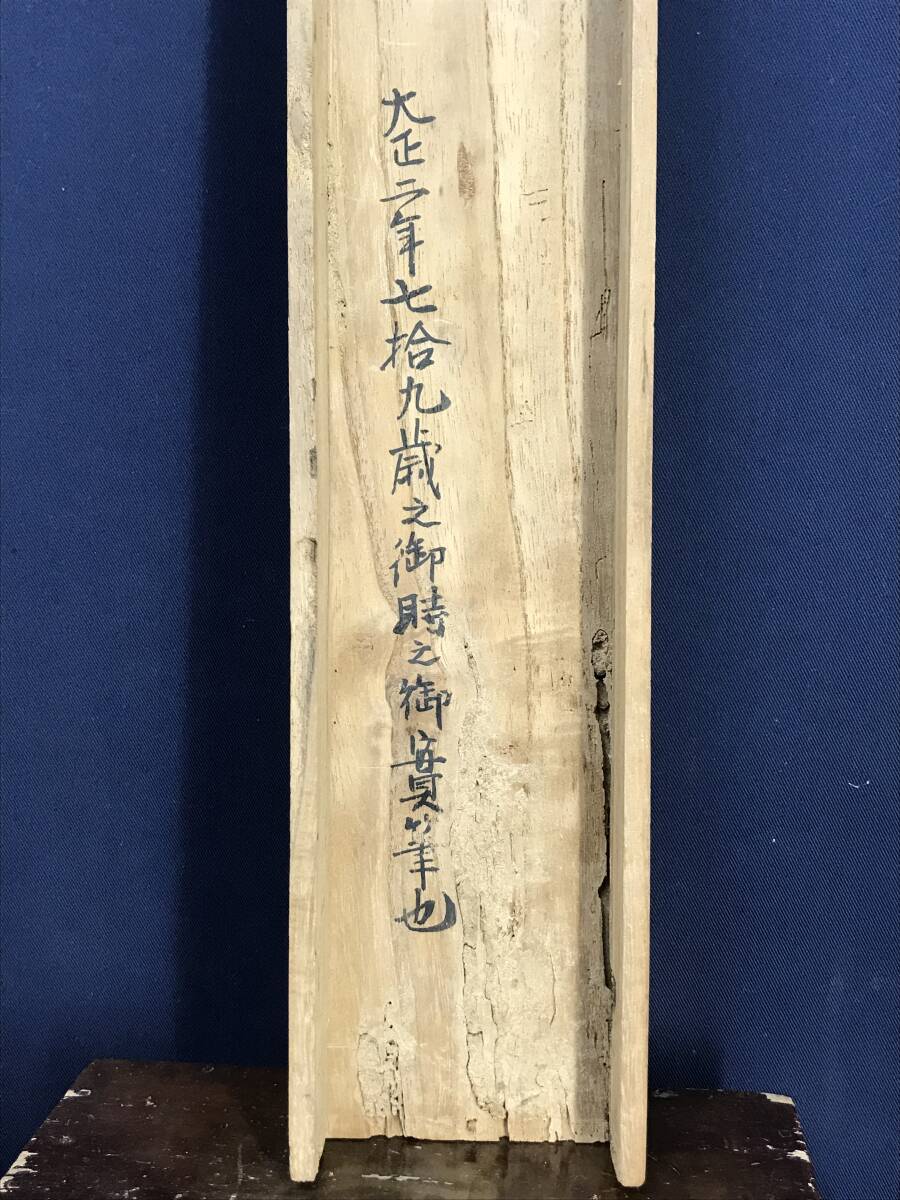 大正二年七拾九歳之御時之御實筆也